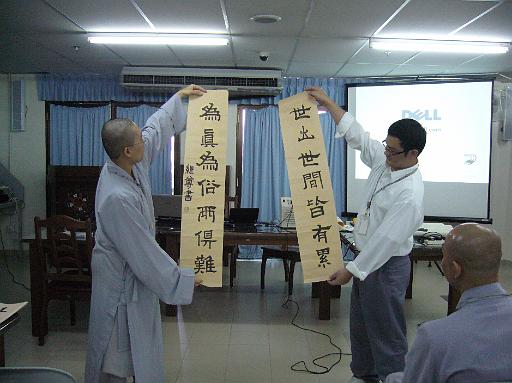 世出世間皆有累
為眞為俗兩得難
DELL